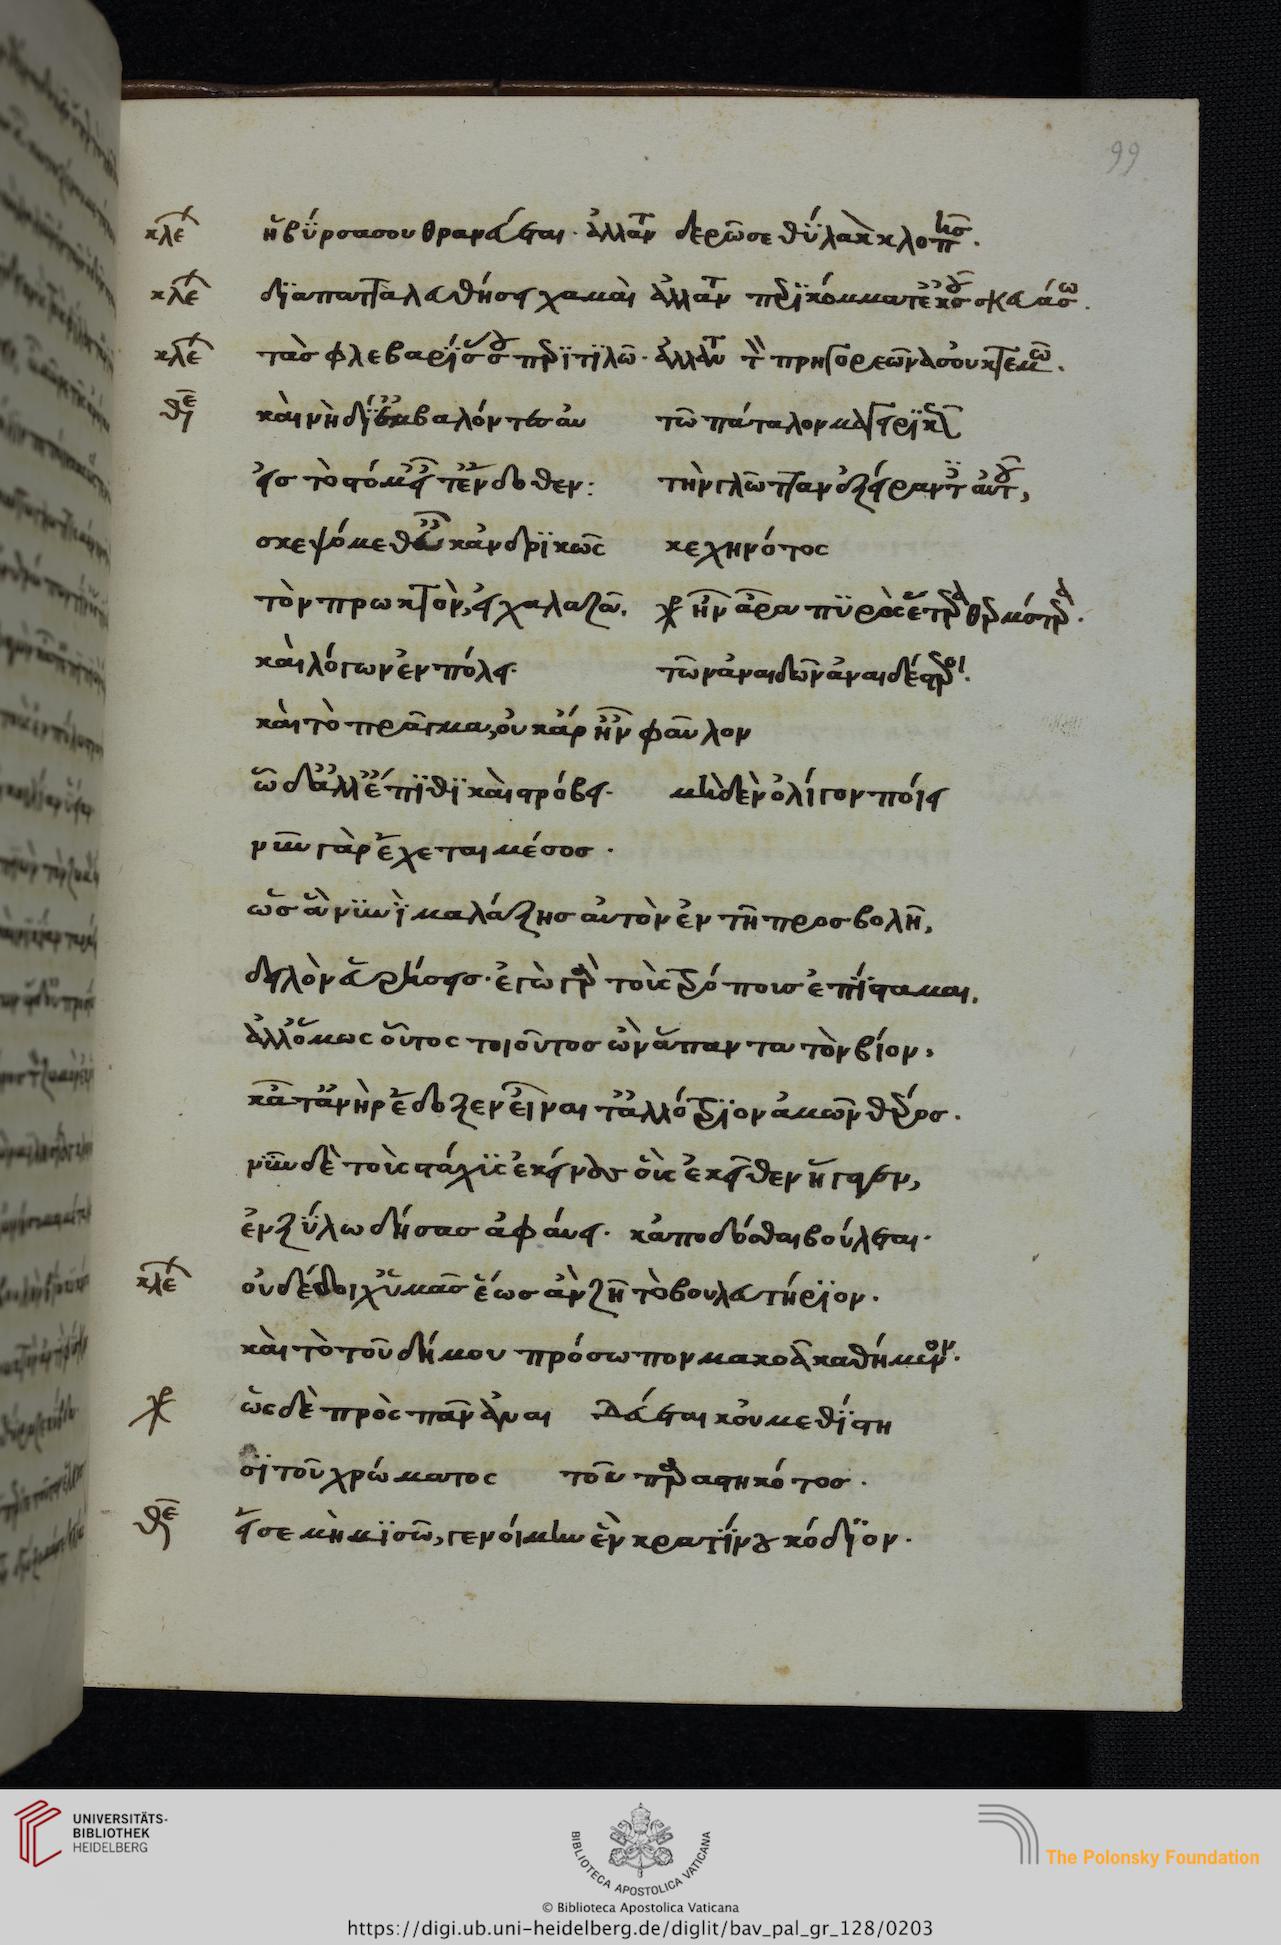 99
κλε ἡ βύρσα σου θρανεύσεται· ἀλλαν δερῶ σε θύλακον κλοπῆς.
κλε διαπατταλευθήσει χαμαί ἀλλαν περικόμματ' ἐκ σοῦ σκευάσω.
κλε τὰς βλεφαρίδας σου παρατιλῶ· ἀλλαν τὸν πρηγορεῶνα σου κτεμῶ.
θε καὶ νὴ δί' ἐμβαλόντες αὐτῶ πάτταλον μαγειρικῶς
εἰς τὸ στόμ' εἶτ' ἔνδοθεν: τὴν γλῶτταν ἐξείραντες αὐτοῦ,
σκεψόμεθ' εὖ κἀνδρικῶς κεχηνότος
τὸν πρωκτὸν, εἰ χαλαζᾶ. χο ἦν ἄρα πυρὸς ἕτερα θερμότερα.
καὶ λόγων ἐν πόλει· τῶν ἀναιδῶν ἀναιδέστεροι.
καὶ τὸ πρᾶγμα, οὐκ ἄρ' ἦν φαῦλον
ὧδ' ἀλλ' ἔπιθι καὶ στρόβει· μηδὲν ὀλίγον ποίει
νῦν γὰρ ἔχεται μέσος·
ὡς ἂν νυνὶ μαλάξης αὐτὸν ἐν τῆ προσβολῆ,
δειλὸν εὑρήσεις· ἐγὼ γὰρ τοὺς τρόπους ἐπίσταμαι.
ἀλλ' ὅμως οὗτος τοιοῦτος ὢν ἅπαντα τὸν βίον,
κᾆτ' ἀνὴρ ἔδοξεν εἶναι τἀλλότριον ἀμῶν θέρος.
νῦν δὲ τοὺς στάχυς ἐκείνους οὓς ἐκεῖθεν ἤγαγεν,
ἐν ξύλω δήσας ἀφαύει· κἀποδόσθαι βούλεται·
κλε οὐ δέδοιχ' ὑμᾶς ἕως ἂν ζῆ τὸ βουλευτήριον.
καὶ τὸ τοῦ δήμου πρόσωπον μακκοᾶ καθήμενον.
χο ὡς δὲ πρὸς πᾶν ἀναιδεύεται κοὐ μεθίστησι
τοῦ χρώματος τοῦ παρεστηκότος.
θε εἴ σε μὴ μισῶ, γενοίμην ἐν κρατίνου κώδιον.
UNIVERSITÄTS-
BIBLIOTHEK
HEIDELBERG
BIBLIOTECA APOSTOLICA VATICANA
The Polonsky Foundation
© Biblioteca Apostolica Vaticana
https://digi.ub.uni-heidelberg.de/diglit/bav_pal_gr_128/0203